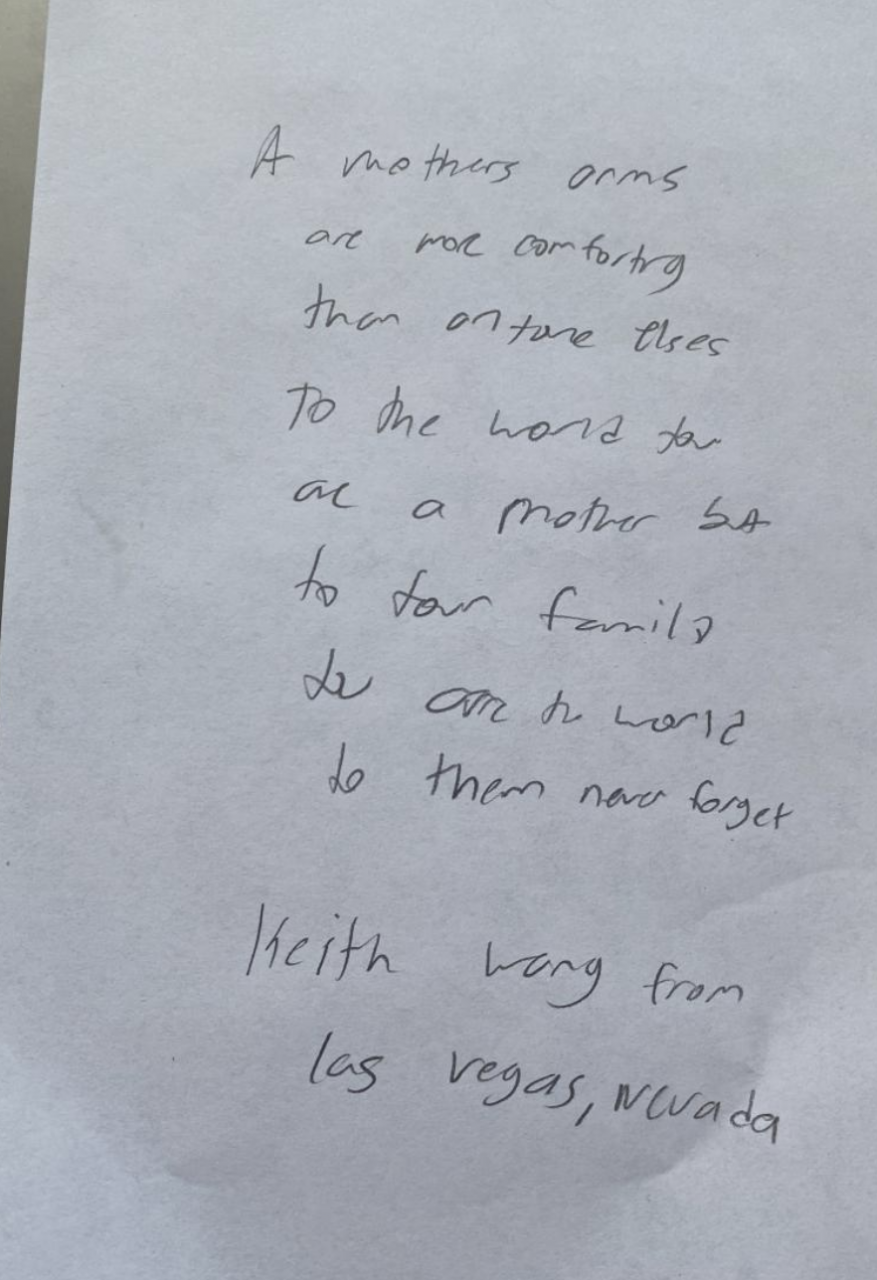 A mothers arms
are more comforting
than anyone elses
To the world you
are a mother but
to your family
you are the world
to them never forget
Keith Wang from
las vegas, Nevada